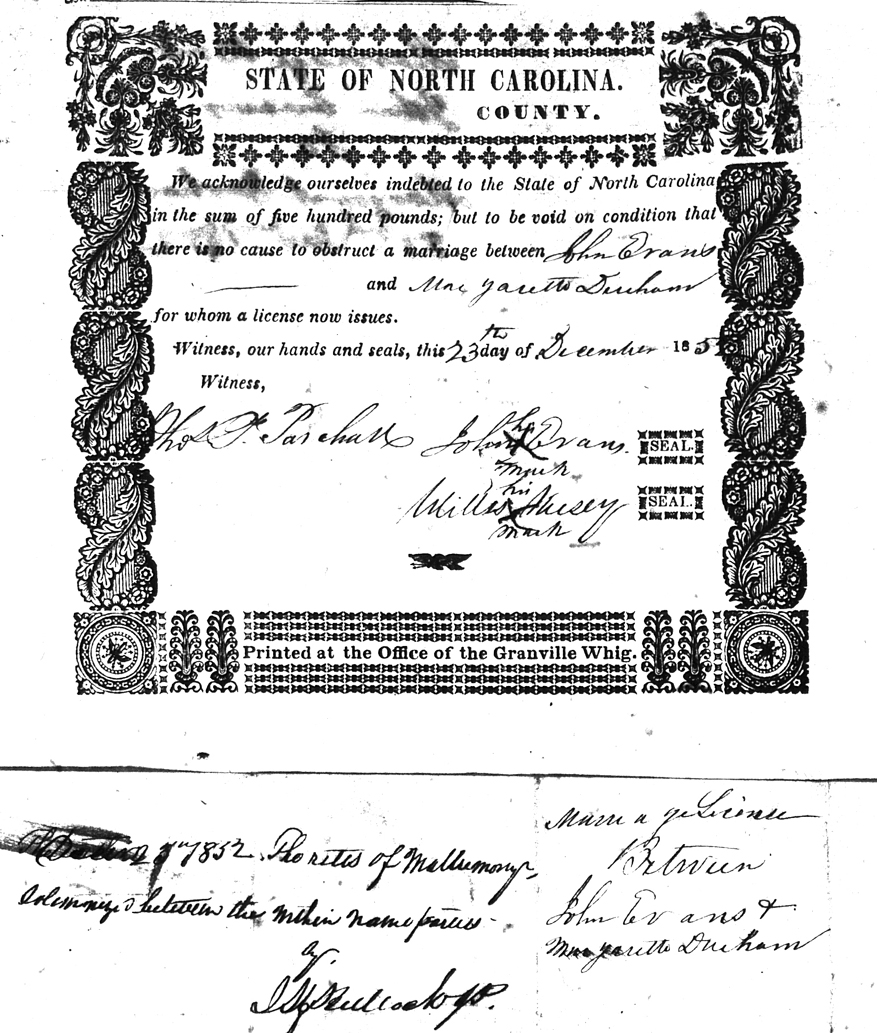 STATE OF NORTH CAROLINA.
COUNTY.
We acknowledge ourselves indebted to the State of North Carolina
in the sum of five hundred pounds; but to be void on condition that
there is no cause to obstruct a marriage between John Evans
and Margaretto Durham
for whom a license now issues.
Witness, our hands and seals, this 23th day of December 185
Witness,
his
John X Evans. SEAL.
mark
his
Willis X SEAL.
mark
Printed at the Office of the Granville Whig.
Marriage License
Between
John Evans &
Margaretto Durham
1852 The rites of Matrimony
between the within name parties
by